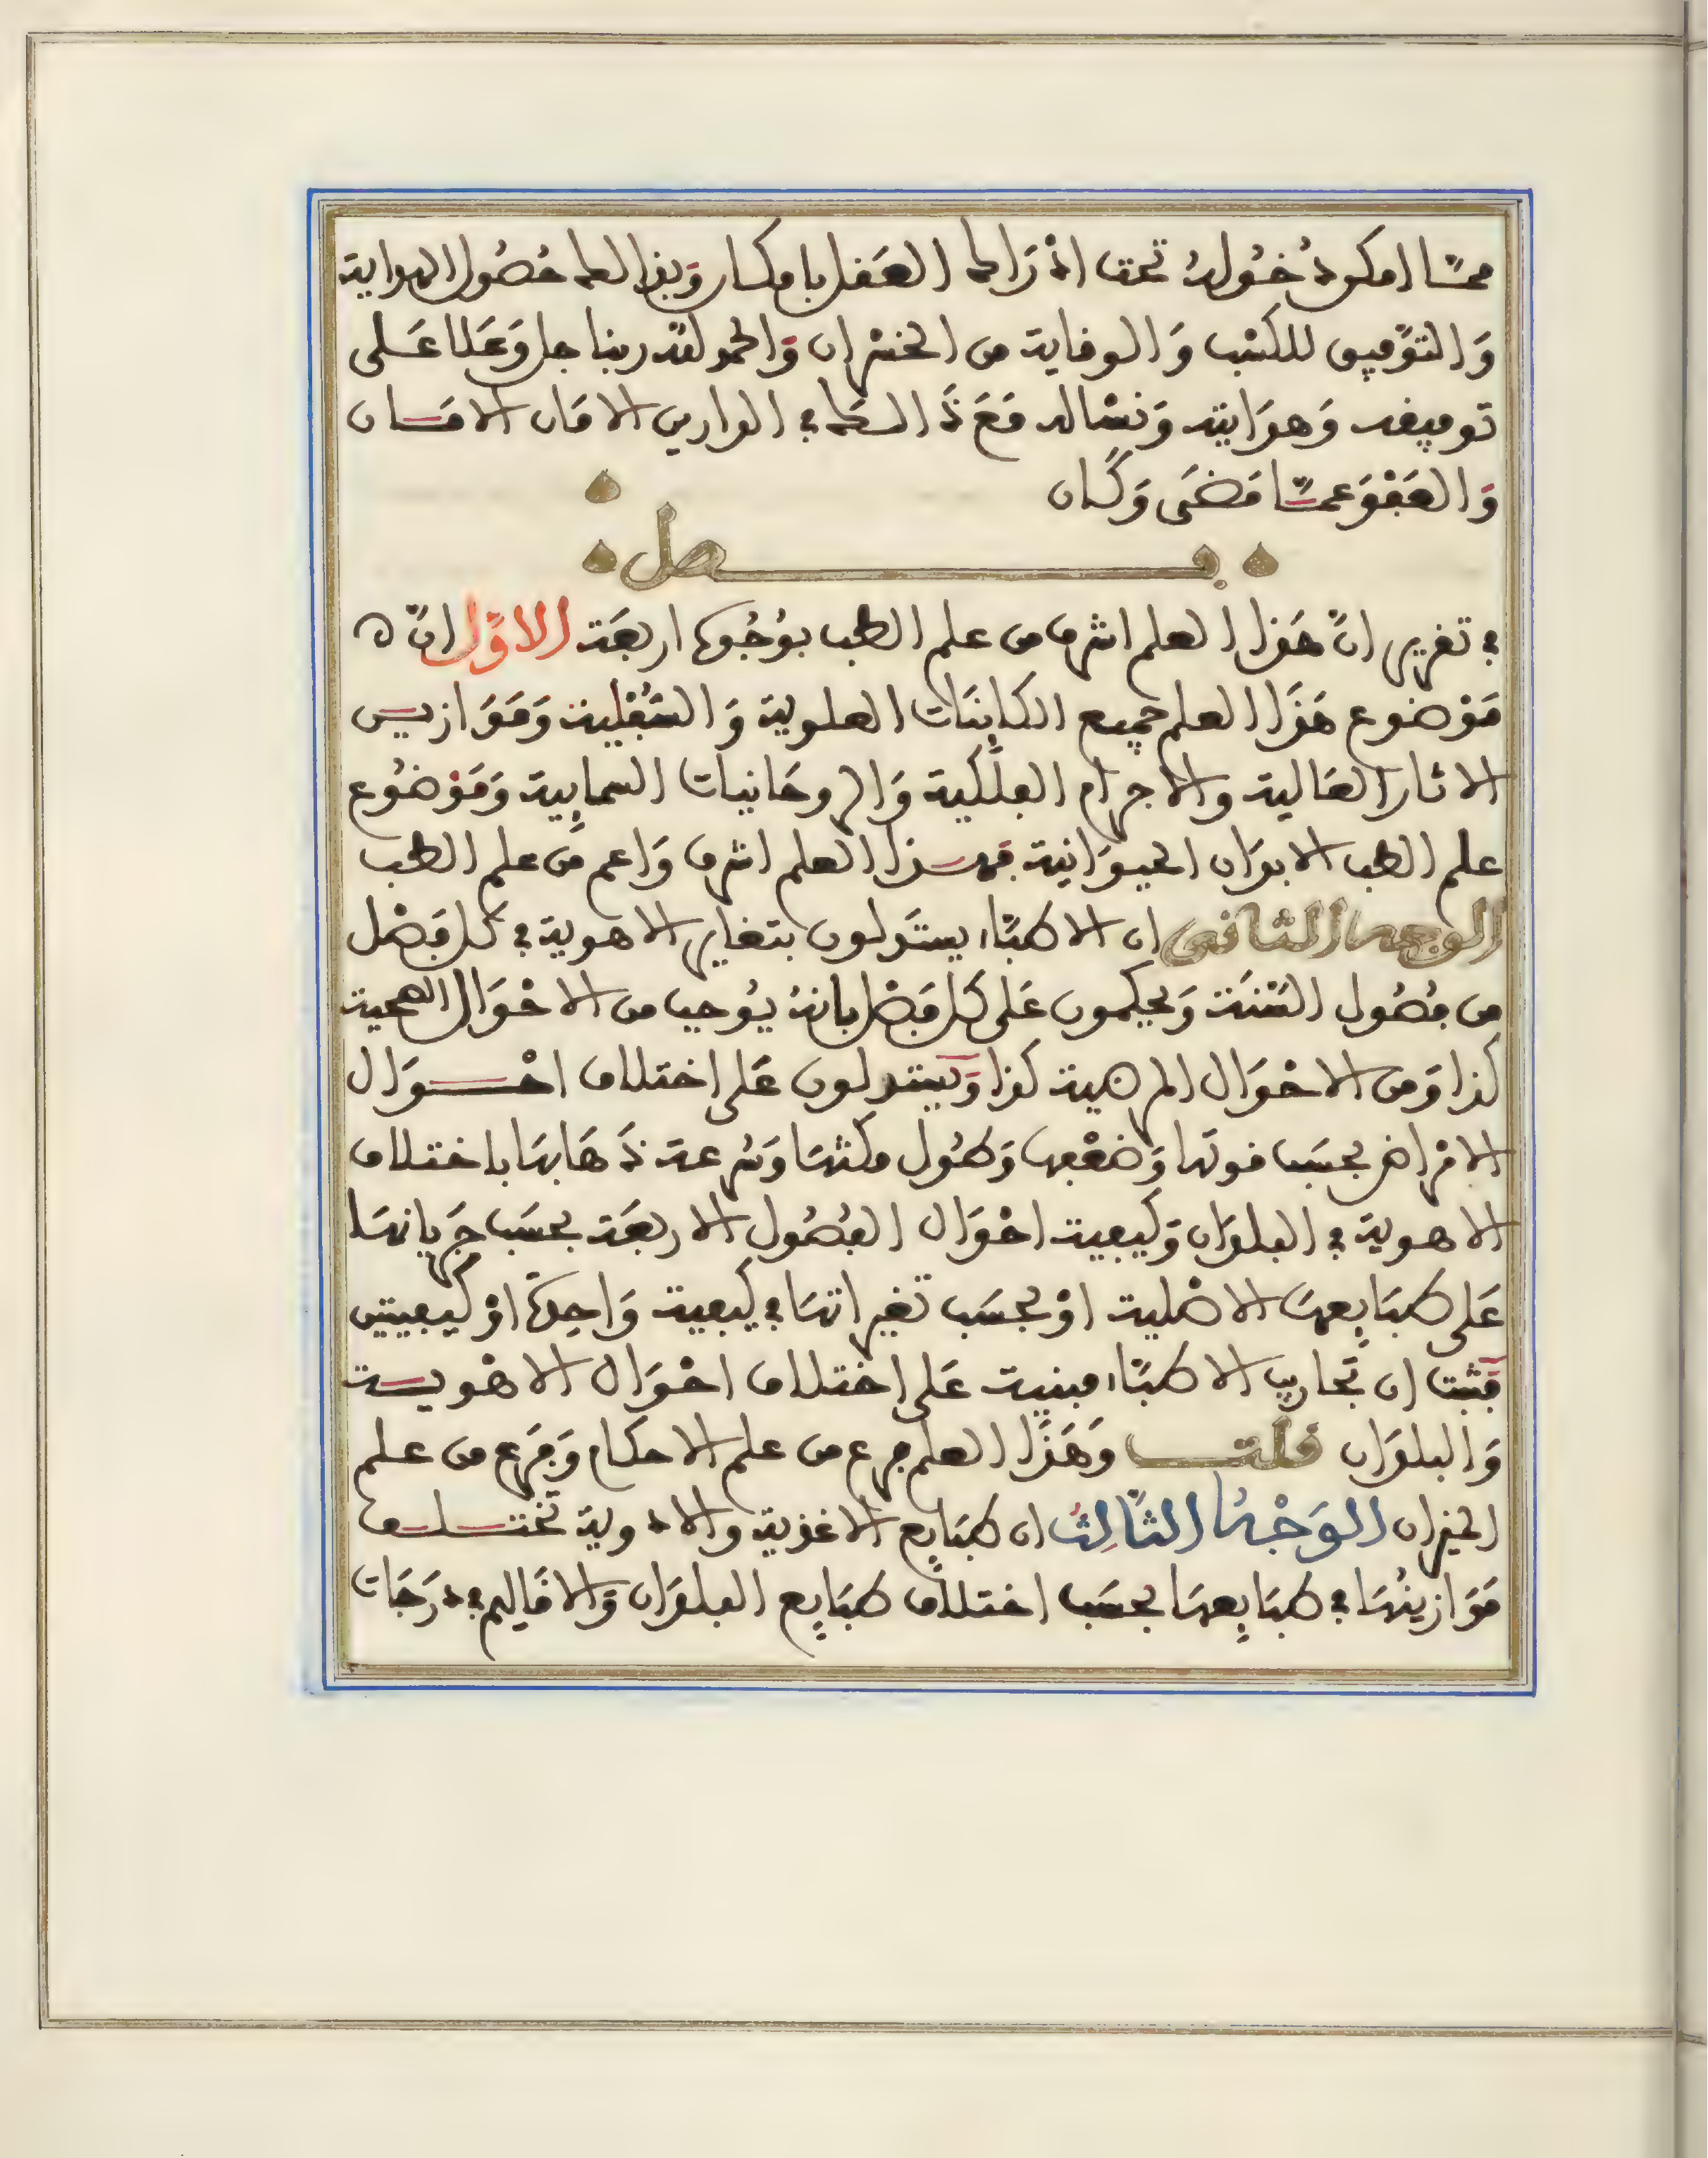 مما امكن دخوله تحت ادراك العقل بامكان وبذلك حصول الهداية
والتوفيق للكسب والوقاية من الخسران والحمد لله ربنا جل وعلا على
توفيقه وهدايته ونساله مع ذالك في الدارين الامان الامان
والعفو عما مضى وكان
فصل
في تقرير ان هذا العلم اشرف من علم الطب بوجوه اربعة الاول ان
موضوع هذا العلم جميع الكاينات العلوية والسفلية وموازيـن
الاثار العالية والاجرام الفلكية والروحانيات السمايية وموضوع
علم الطب الابدان الحيوانية فهـذا العلم اشرف واعم من علم الطب
الوجه الثاني ان الاطباء يستدلون بتغاير الاهوية في كل فصل
من فصول السنة ويحكمون على كل فصل بانه يوجب من الاحوال الصحية
كذا ومن الاحوال المرضية كذا ويستدلون على اختلاف احــوال
الامراض بحسب قوتها وضعفها وطول مكثها وسرعة ذهابها باختلاف
الاهوية في البلدان وكيفية احوال الفصول الاربعة بحسب جريانها
على طبايعها الاصلية او بحسب تغيراتها في كيفية واحدة او كيفيتين
فثبت ان تجارب الاطباء مبنية على اختلاف احوال الاهويـة
والبلدان قلت وهذا العلم فرع من علم الاحكام وفرع من علم
الميزان الوجه الثالث ان طبايع الاغذية والادوية تختـلـف
موازينها في طبايعها بحسب اختلاف طبايع البلدان والاقاليم في درجات